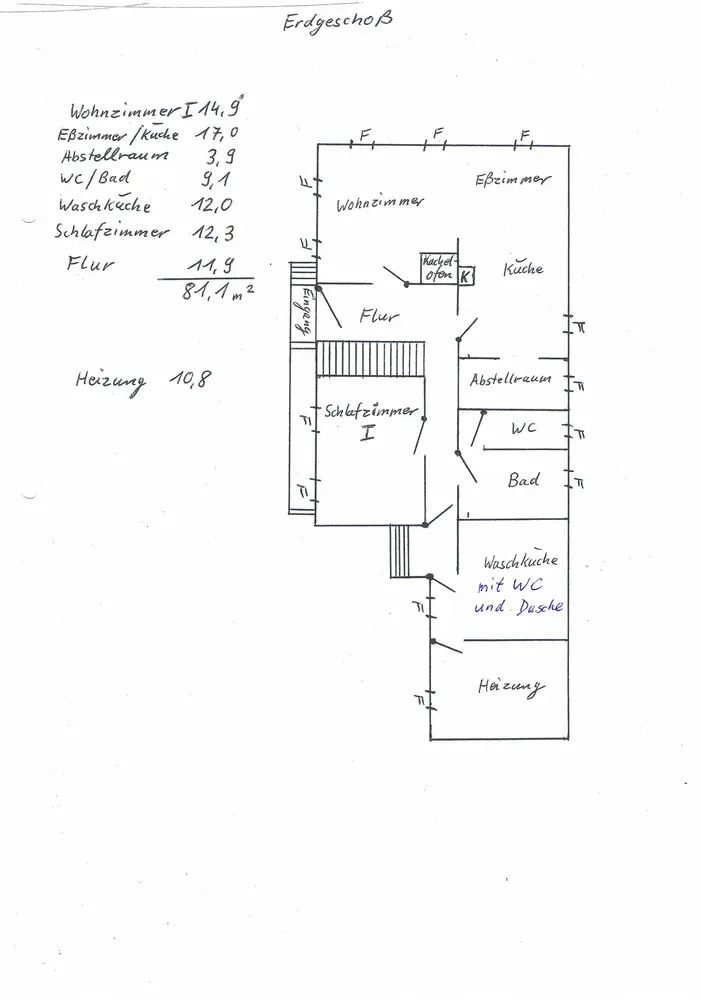 Erdgeschoß
Wohnzimmer I 14,9
Eßzimmer/Küche 17,0
Abstellraum 3,9
WC/Bad 9,1
Waschküche 12,0
Schlafzimmer 12,3
Flur 11,9
81,1 m²
Heizung 10,8
F F F
Eßzimmer
F
Wohnzimmer
F
Kachel-
ofen K
Küche
Eingang
Flur
F
Abstellraum
F
Schlafzimmer
I
F
WC
F
Bad
F
F
Waschküche
mit WC
und Dusche
F
Heizung
F